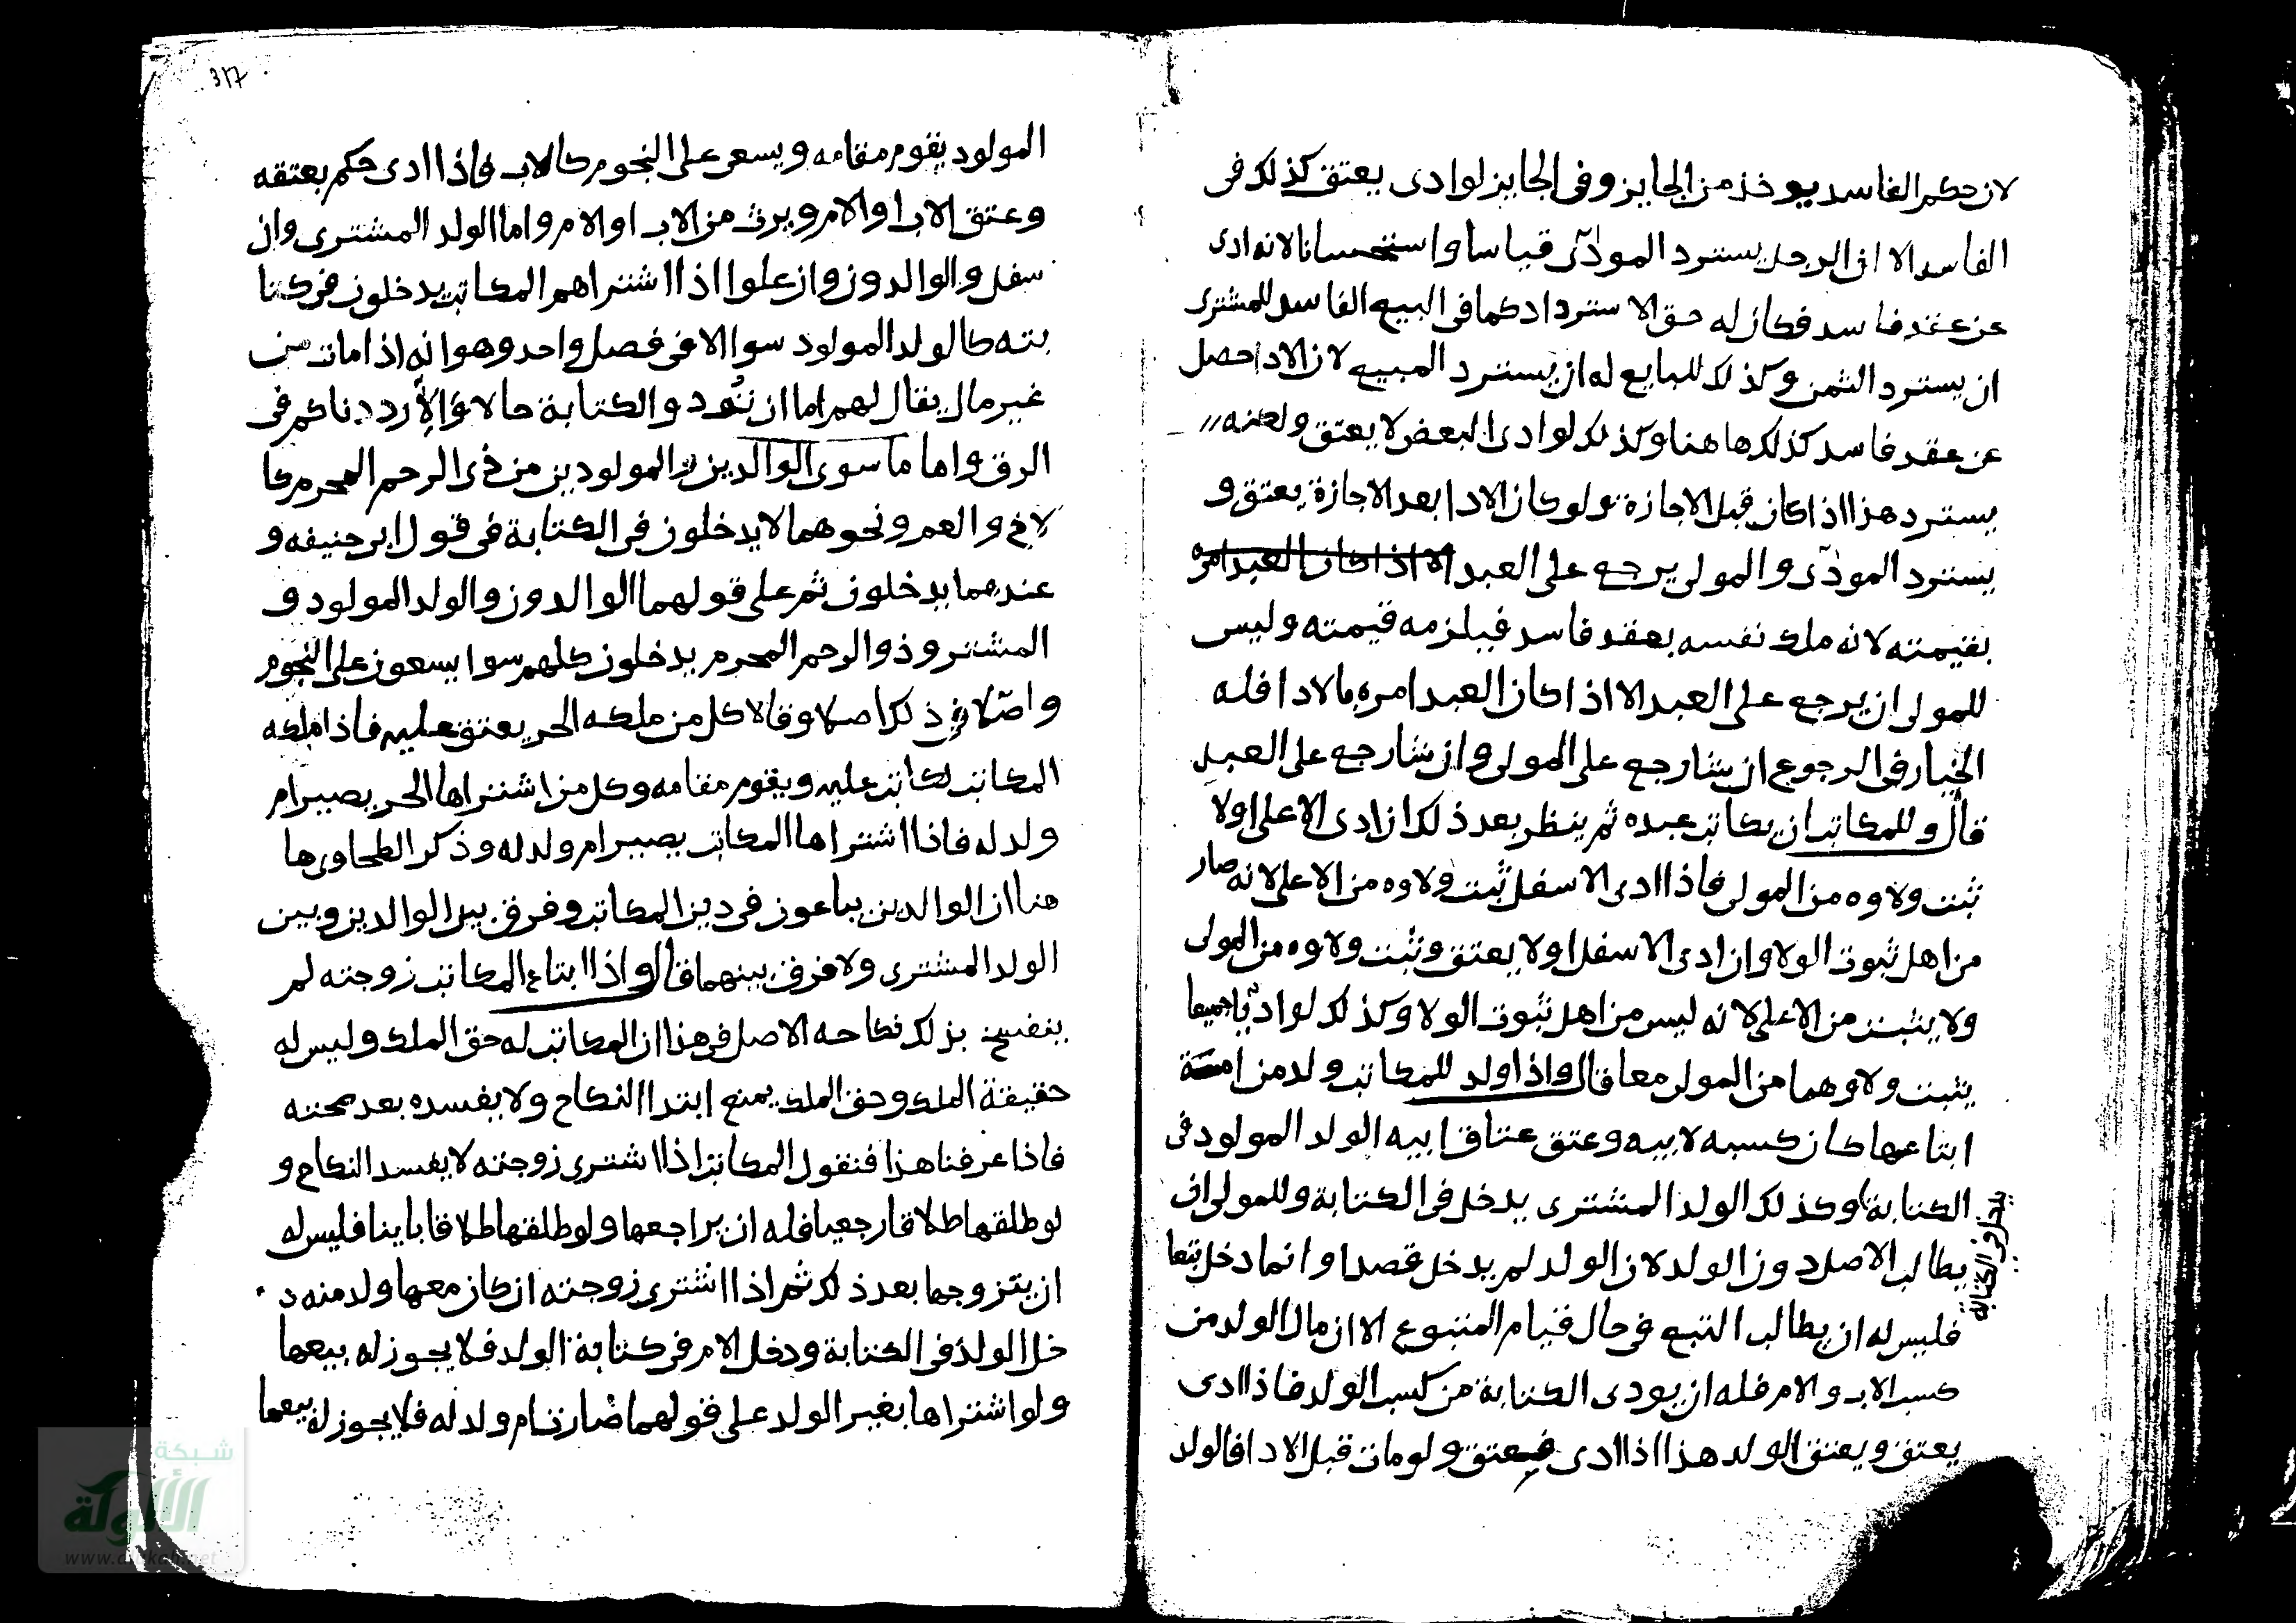 لان حكم الفاسد يوخذ من الجايز وفى الجايز لو ادى يعتق كذلك فى
الفاسد الا ان الرجل يسترد المودّى قياسا واستحسانا لانه ادى
عن عقد فاسد فكان له حق الاسترداد كما فى البيع الفاسد للمشترى
ان يسترد الثمن وكذلك للبايع له ان يسترد المبيع لان الادا حصل
عن عقد فاسد كذلك هاهنا وكذلك لو ادى البعض لا يعتق ولكنه
يسترد هذا اذا كان قبل الاجازة ولو كان الادا بعد الاجازة يعتق و
يسترد المودّى والمولى يرجع على العبد الا اذا كان العبد امره
بقيمته لانه ملك نفسه بعقد فاسد فيلزمه قيمته وليس
للمولى ان يرجع على العبد الا اذا كان العبد امره بالادا فله
الخيار فى الرجوع ان شا رجع على المولى وان شا رجع على العبد
قال وللمكاتب ان يكاتب عبده ثم ينظر بعد ذلك ان ادى الاعلى اولا
ثبت ولاوه من المولى فاذا ادى الاسفل ثبت ولاوه من الاعلى لانه صار
من اهل ثبوت الولا وان ادى الاسفل اولا يعتق وثبت ولاوه من المولى
ولا يثبت من الاعلى لانه ليس من اهل ثبوت الولا وكذلك لو ادّيا جميعا
يثبت ولاوهما من المولى معا قال واذا ولد للمكاتب ولد من امة
ابتاعها كان كسبه لابيه وعتق عتاق ابيه الولد المولود فى
الكتابة وكذلك الولد المشترى يدخل فى الكتابة وللمولى ان
يدخل فى الكتابة
يطالب الاصل دون الولد لان الولد لم يدخل قصدا وانما دخل تبعا
فليس له ان يطالب التبع فى حال قيام المتبوع الا ان مال الولد من
كسب الاب والام فله ان يودى الكتابة من كسب الولد فاذا ادى
يعتق ويعتق الولد هذا اذا ادى فيعتق ولو مات قبل الادا فالولد
317
المولود يقوم مقامه ويسعى على النجوم كالاب فاذا ادى حكم بعتقه
وعتق الاب او الام ويرث من الاب او الام واما الولد المشترى وان
سفل والوالدون وان علوا اذا اشتراهم المكاتب يدخلون فى كتا
بته كالولد المولود سوا الا فى فصل واحد وهو انه اذا مات من
غير مال يقال لهم اما ان تودوا الكتابة حالا والا رددناكم فى
الرق واما ما سوى الوالدين والمولودين من ذى الرحم المحرم كا
لاخ والعم ونحوهما لا يدخلون فى الكتابة فى قول ابى حنيفه و
عندهما يدخلون ثم على قولهما الوالدون والولد المولود و
المشترى وذو الرحم المحرم يدخلون كلهم سوا يسعون على النجوم
واصّلا فى ذلك اصلا وقالا كل من ملكه الحر يعتق عليه فاذا ملكه
المكاتب تكاتب عليه ويقوم مقامه وكل من اشتراها الحر يصير ام
ولد له فاذا اشتراها المكاتب يصير ام ولد له وذكر الطحاوى ها
هنا ان الوالدين يباعون فى دين المكاتب وفرق بين الوالدين وبين
الولد المشترى ولا فرق بينهما قال واذا ابتاع المكاتب زوجته لم
ينفسخ بذلك نكاحه الاصل فى هذا ان المكاتب له حق الملك وليس له
حقيقة الملك وحق الملك يمنع ابتدا النكاح ولا يفسده بعد صحته
فاذا عرفنا هذا فنقول المكاتب اذا اشترى زوجته لا يفسد النكاح و
لو طلقها طلاقا رجعيا فله ان يراجعها ولو طلقها طلاقا باينا فليس له
ان يتزوجها بعد ذلك ثم اذا اشترى زوجته ان كان معها ولد منه د
خل الولد فى الكتابة ودخل الام فى كتابة الولد فلا يجوز له بيعها
ولو اشتراها بغير الولد على قولهما صارت ام ولد له فلا يجوز له بيعها
شبكة
الألوكة
www.alukah.net